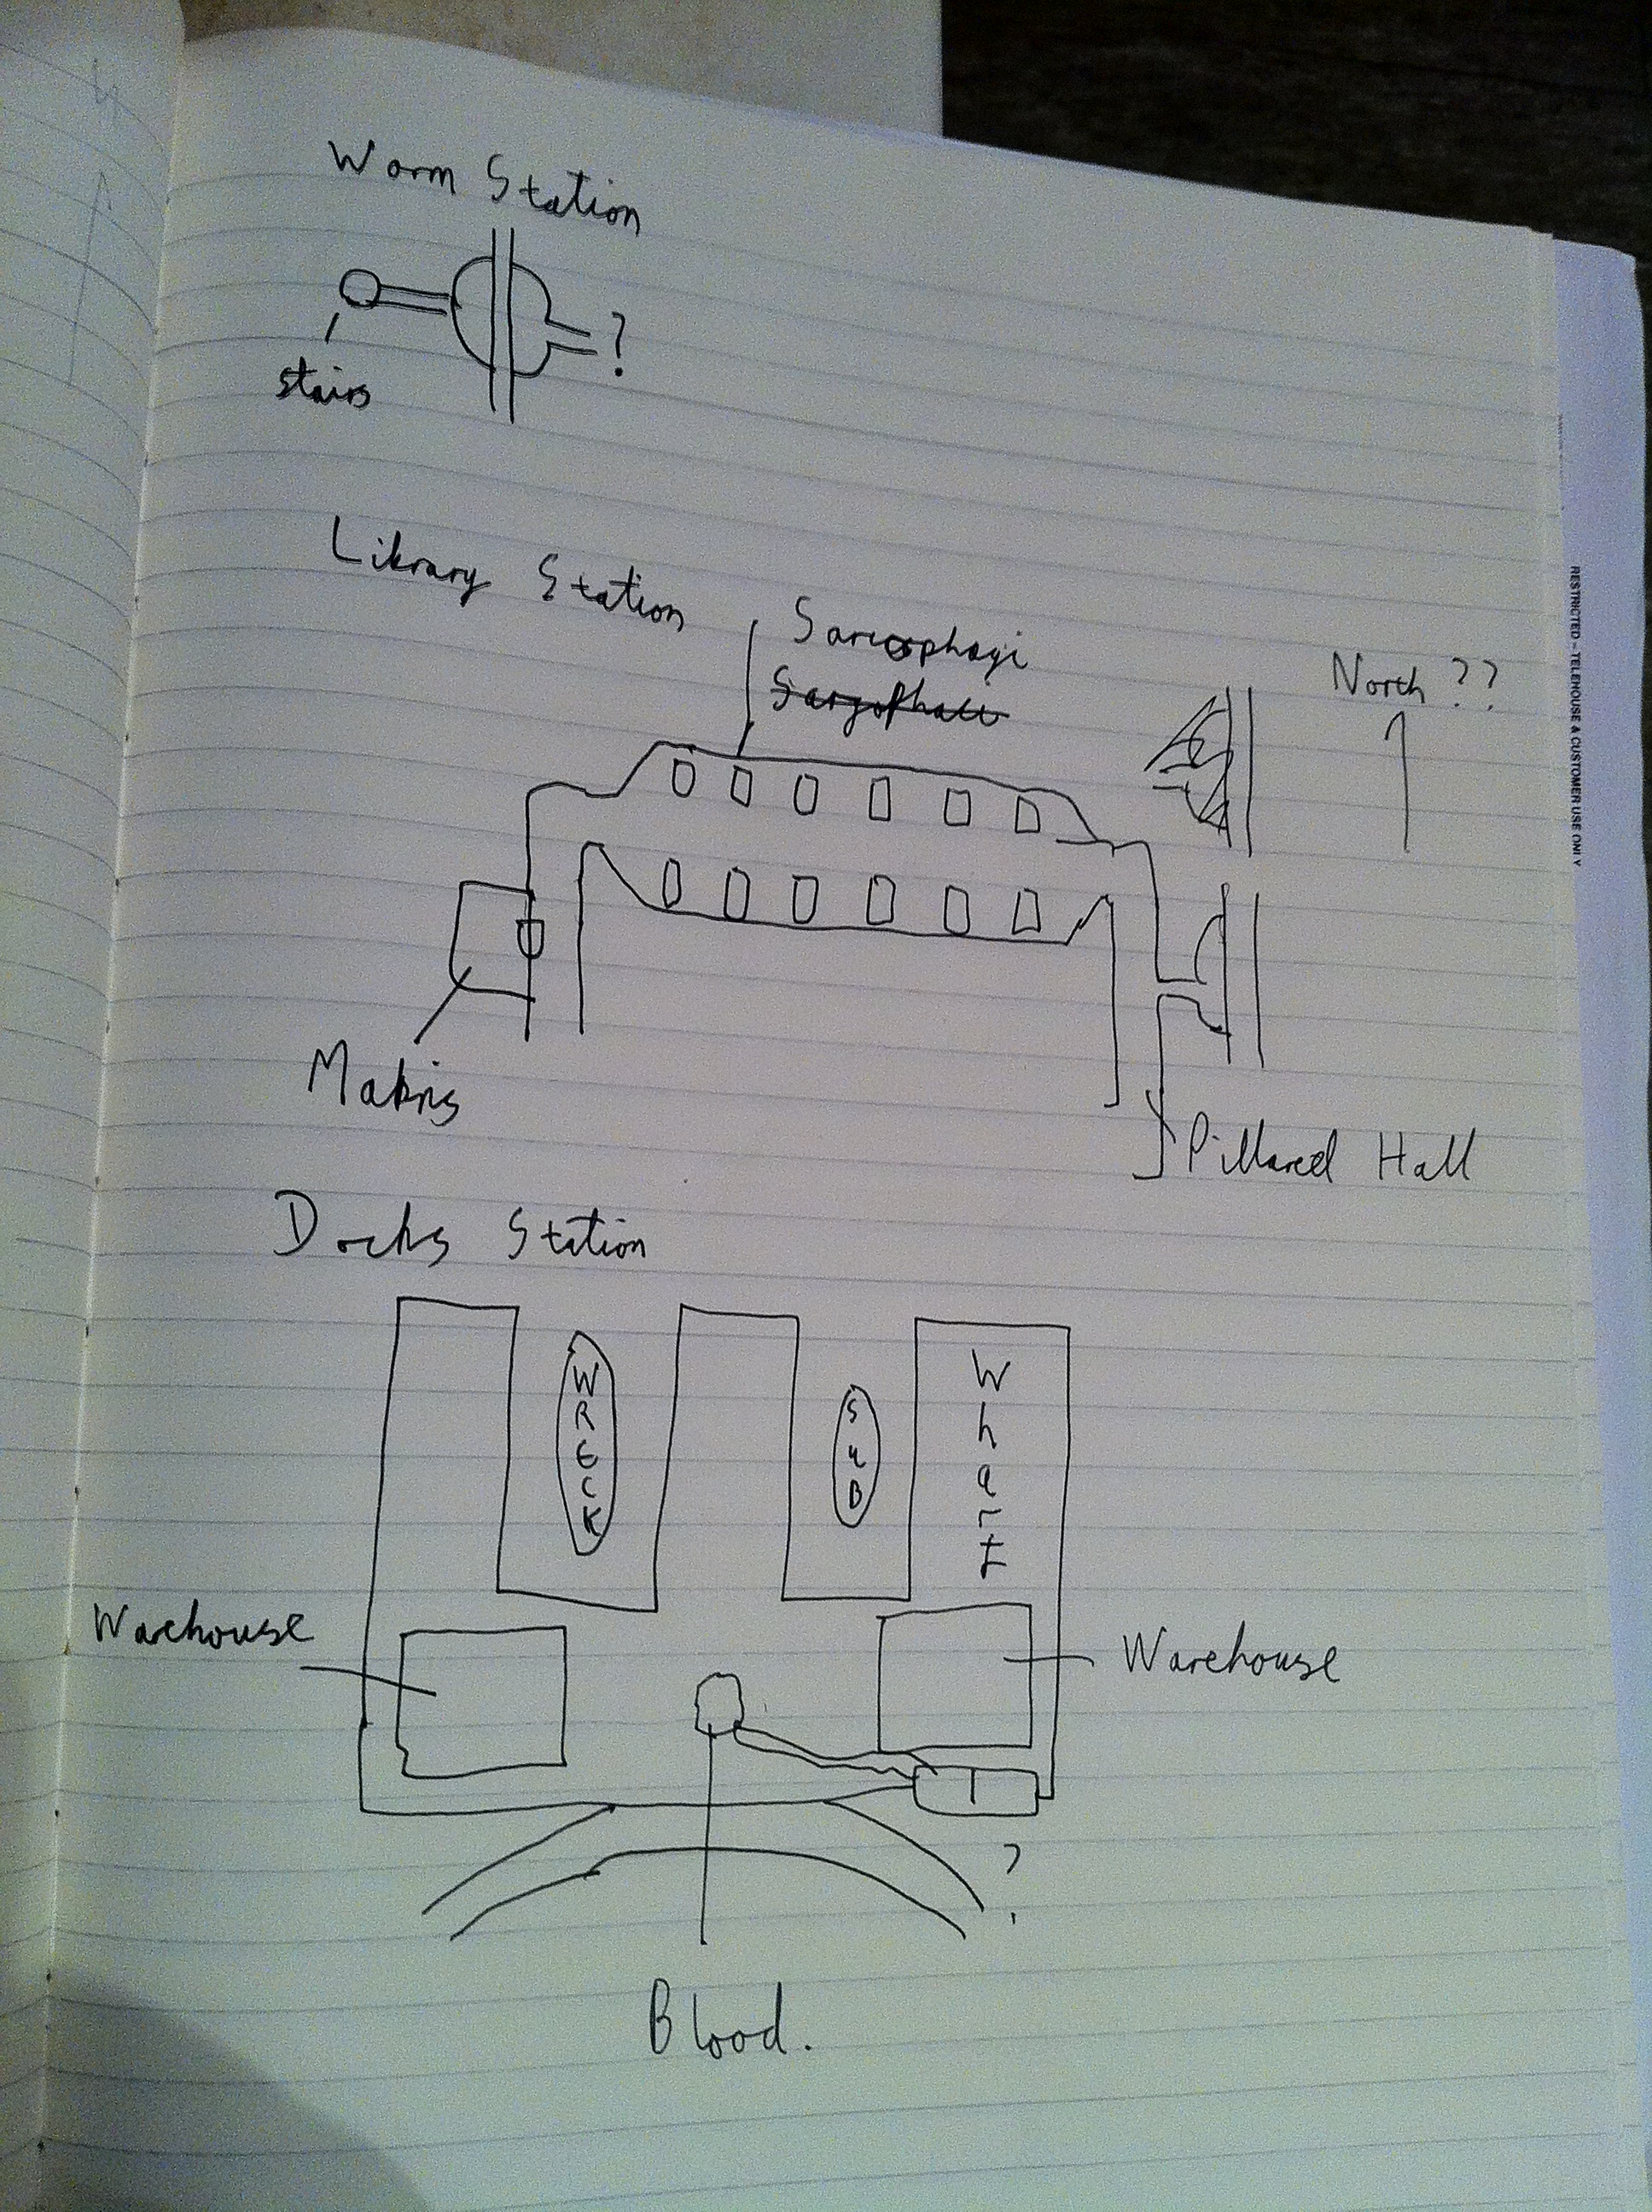 Worm Station
?
stairs
Library Station
Sarcophagi
North ??
Makris
Pillared Hall
Docks Station
WRECK
SUB
Wharf
Warehouse
Warehouse
?
Blood.
RESTRICTED – TELEHOUSE & CUSTOMER USE ONLY